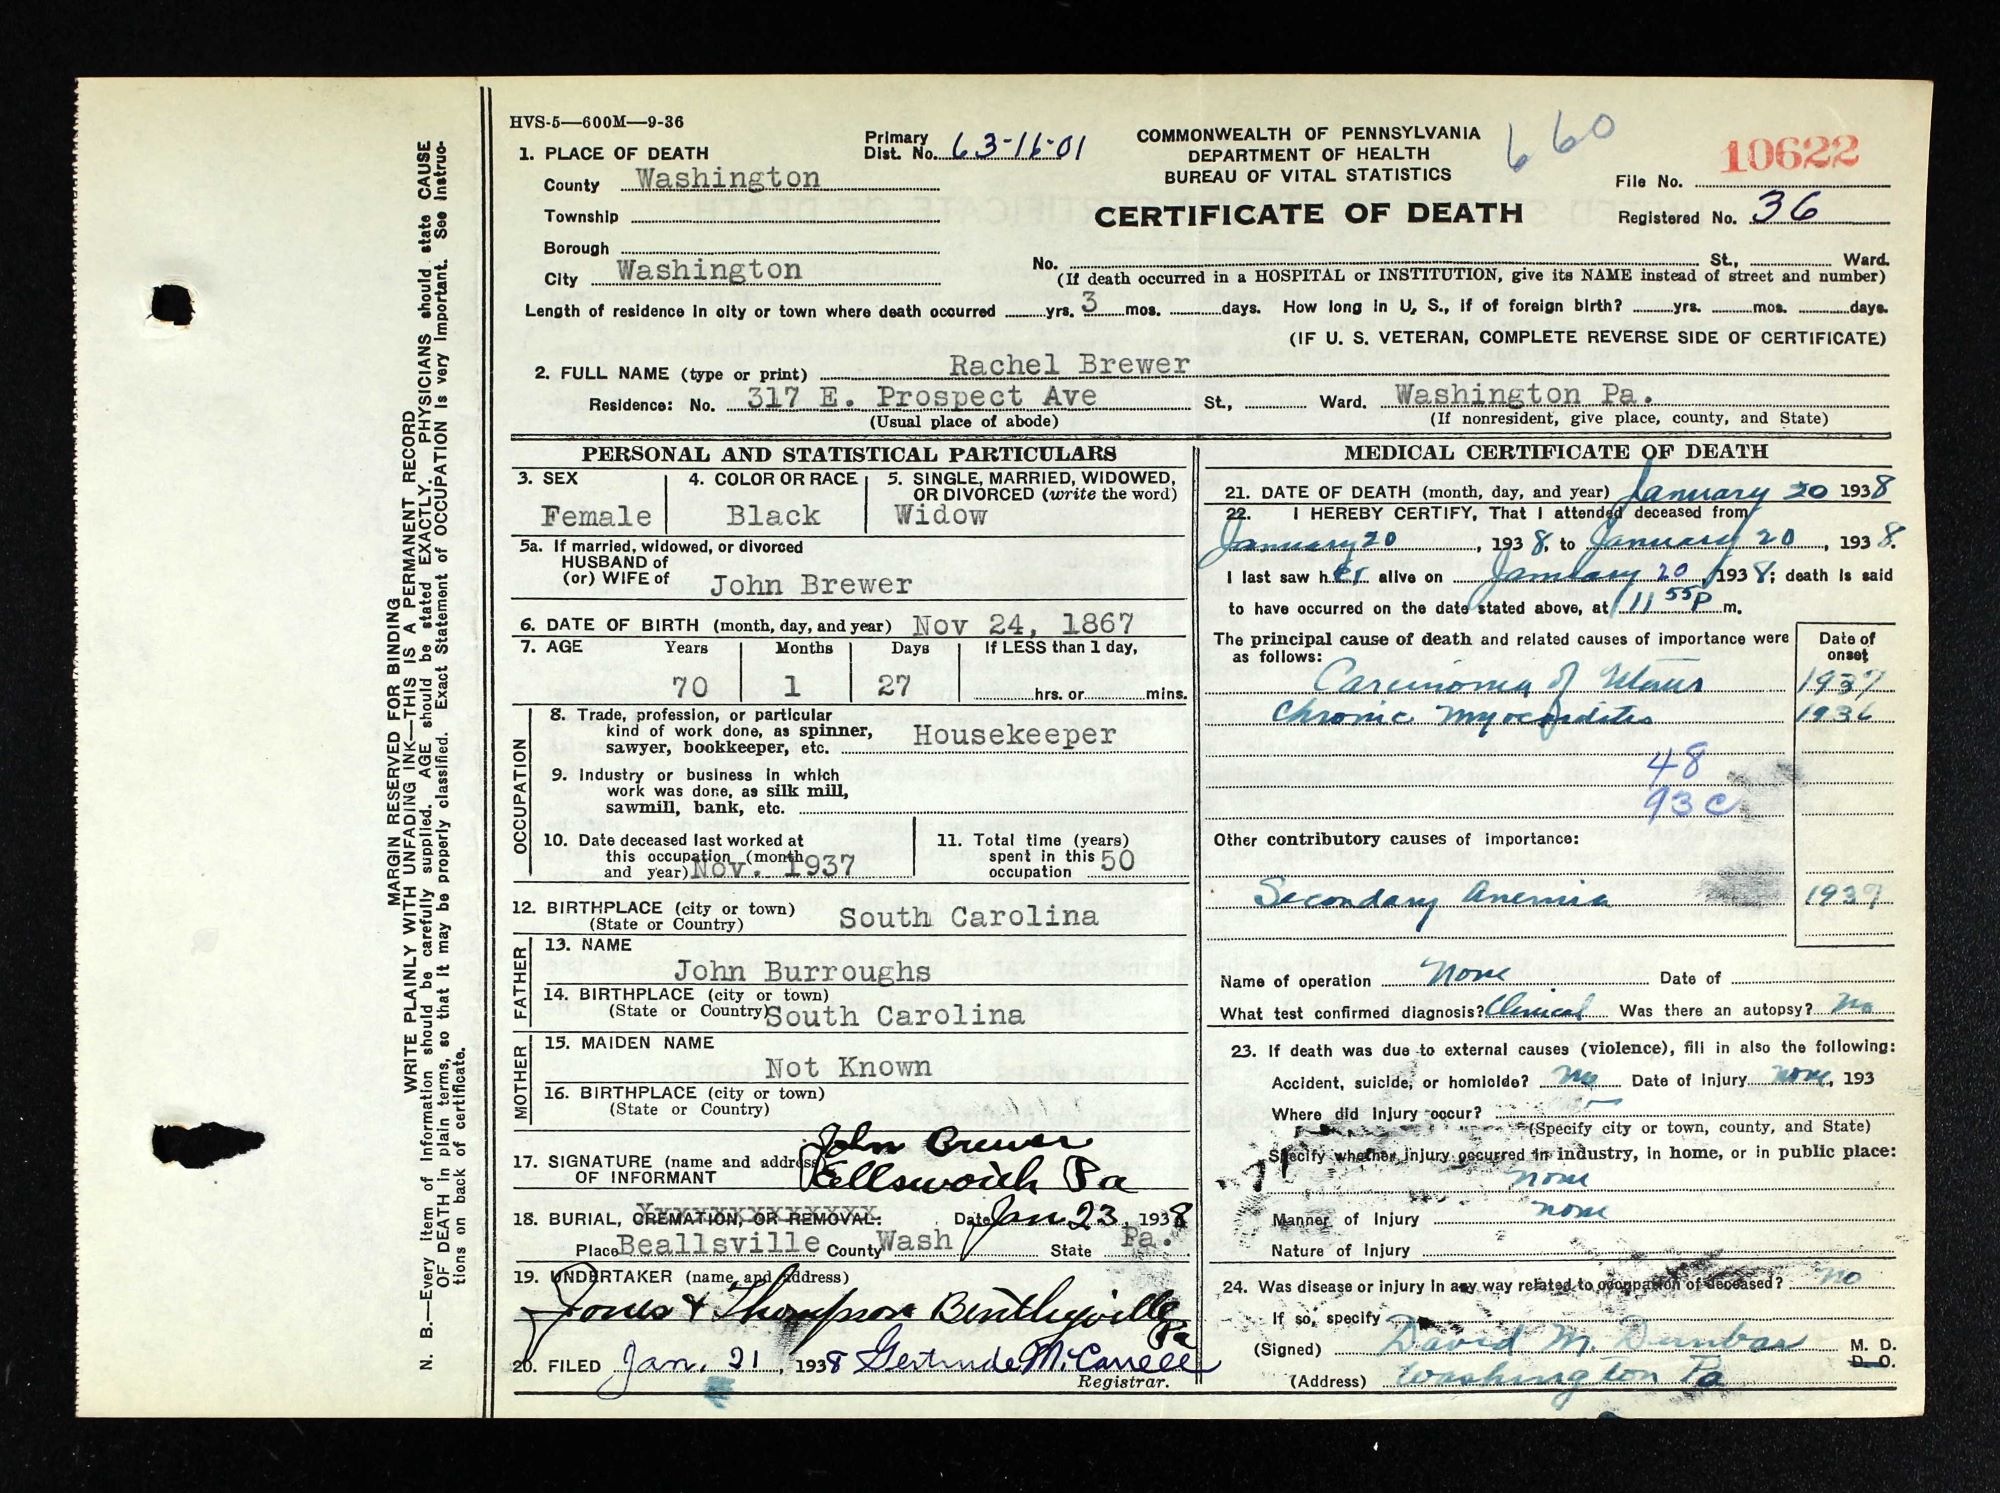 HVS-5—600M—9-36
Primary
Dist. No. 63-16-01
COMMONWEALTH OF PENNSYLVANIA
DEPARTMENT OF HEALTH
BUREAU OF VITAL STATISTICS
660
10622
File No.
Registered No. 36
CERTIFICATE OF DEATH
1. PLACE OF DEATH
County Washington
Township
Borough
City Washington
No. St., Ward.
(If death occurred in a HOSPITAL or INSTITUTION, give its NAME instead of street and number)
Length of residence in city or town where death occurred yrs. 3 mos. days. How long in U. S., if of foreign birth? yrs. mos. days.
(IF U. S. VETERAN, COMPLETE REVERSE SIDE OF CERTIFICATE)
2. FULL NAME (type or print) Rachel Brewer
Residence: No. 317 E. Prospect Ave St., Ward. Washington Pa.
(Usual place of abode) (If nonresident, give place, county, and State)
PERSONAL AND STATISTICAL PARTICULARS
3. SEX
Female
4. COLOR OR RACE
Black
5. SINGLE, MARRIED, WIDOWED,
OR DIVORCED (write the word)
Widow
5a. If married, widowed, or divorced
HUSBAND of
(or) WIFE of John Brewer
6. DATE OF BIRTH (month, day, and year) Nov 24, 1867
7. AGE Years Months Days If LESS than 1 day,
70 1 27 hrs. or mins.
OCCUPATION
8. Trade, profession, or particular
kind of work done, as spinner,
sawyer, bookkeeper, etc. Housekeeper
9. Industry or business in which
work was done, as silk mill,
sawmill, bank, etc.
10. Date deceased last worked at
this occupation (month
and year) Nov. 1937
11. Total time (years)
spent in this
occupation 50
12. BIRTHPLACE (city or town)
(State or Country) South Carolina
FATHER
13. NAME
John Burroughs
14. BIRTHPLACE (city or town)
(State or Country) South Carolina
MOTHER
15. MAIDEN NAME
Not Known
16. BIRTHPLACE (city or town)
(State or Country)
17. SIGNATURE (name and address)
OF INFORMANT
John Brewer
Ellsworth Pa
18. BURIAL, CREMATION, OR REMOVAL: Date Jan 23, 1938
Place Beallsville County Wash State Pa.
19. UNDERTAKER (name and address)
Jones & Thompson Bentleyville Pa
20. FILED Jan. 21, 1938 Gertrude McCarrell
Registrar.
MEDICAL CERTIFICATE OF DEATH
21. DATE OF DEATH (month, day, and year) January 20 1938
22. I HEREBY CERTIFY, That I attended deceased from
January 20, 1938, to January 20, 1938.
I last saw her alive on January 20, 1938; death is said
to have occurred on the date stated above, at 11 55 P m.
The principal cause of death and related causes of importance were
as follows:
Date of
onset
Carcinoma of Uterus 1937
Chronic myocarditis 1936
48
93c
Other contributory causes of importance:
Secondary Anemia 1937
Name of operation None Date of
What test confirmed diagnosis? Clinical Was there an autopsy? No
23. If death was due to external causes (violence), fill in also the following:
Accident, suicide, or homicide? no Date of injury none, 193
Where did injury occur?
(Specify city or town, county, and State)
Specify whether injury occurred in industry, in home, or in public place:
none
Manner of injury none
Nature of injury
24. Was disease or injury in any way related to occupation of deceased? no
If so, specify
(Signed) David M. Dunbar M. D.
D. O.
(Address) Washington Pa
MARGIN RESERVED FOR BINDING
WRITE PLAINLY WITH UNFADING INK—THIS IS A PERMANENT RECORD
N. B.—Every item of information should be carefully supplied. AGE should be stated EXACTLY. PHYSICIANS should state CAUSE
OF DEATH in plain terms, so that it may be properly classified. Exact Statement of OCCUPATION is very important. See instruc-
tions on back of certificate.